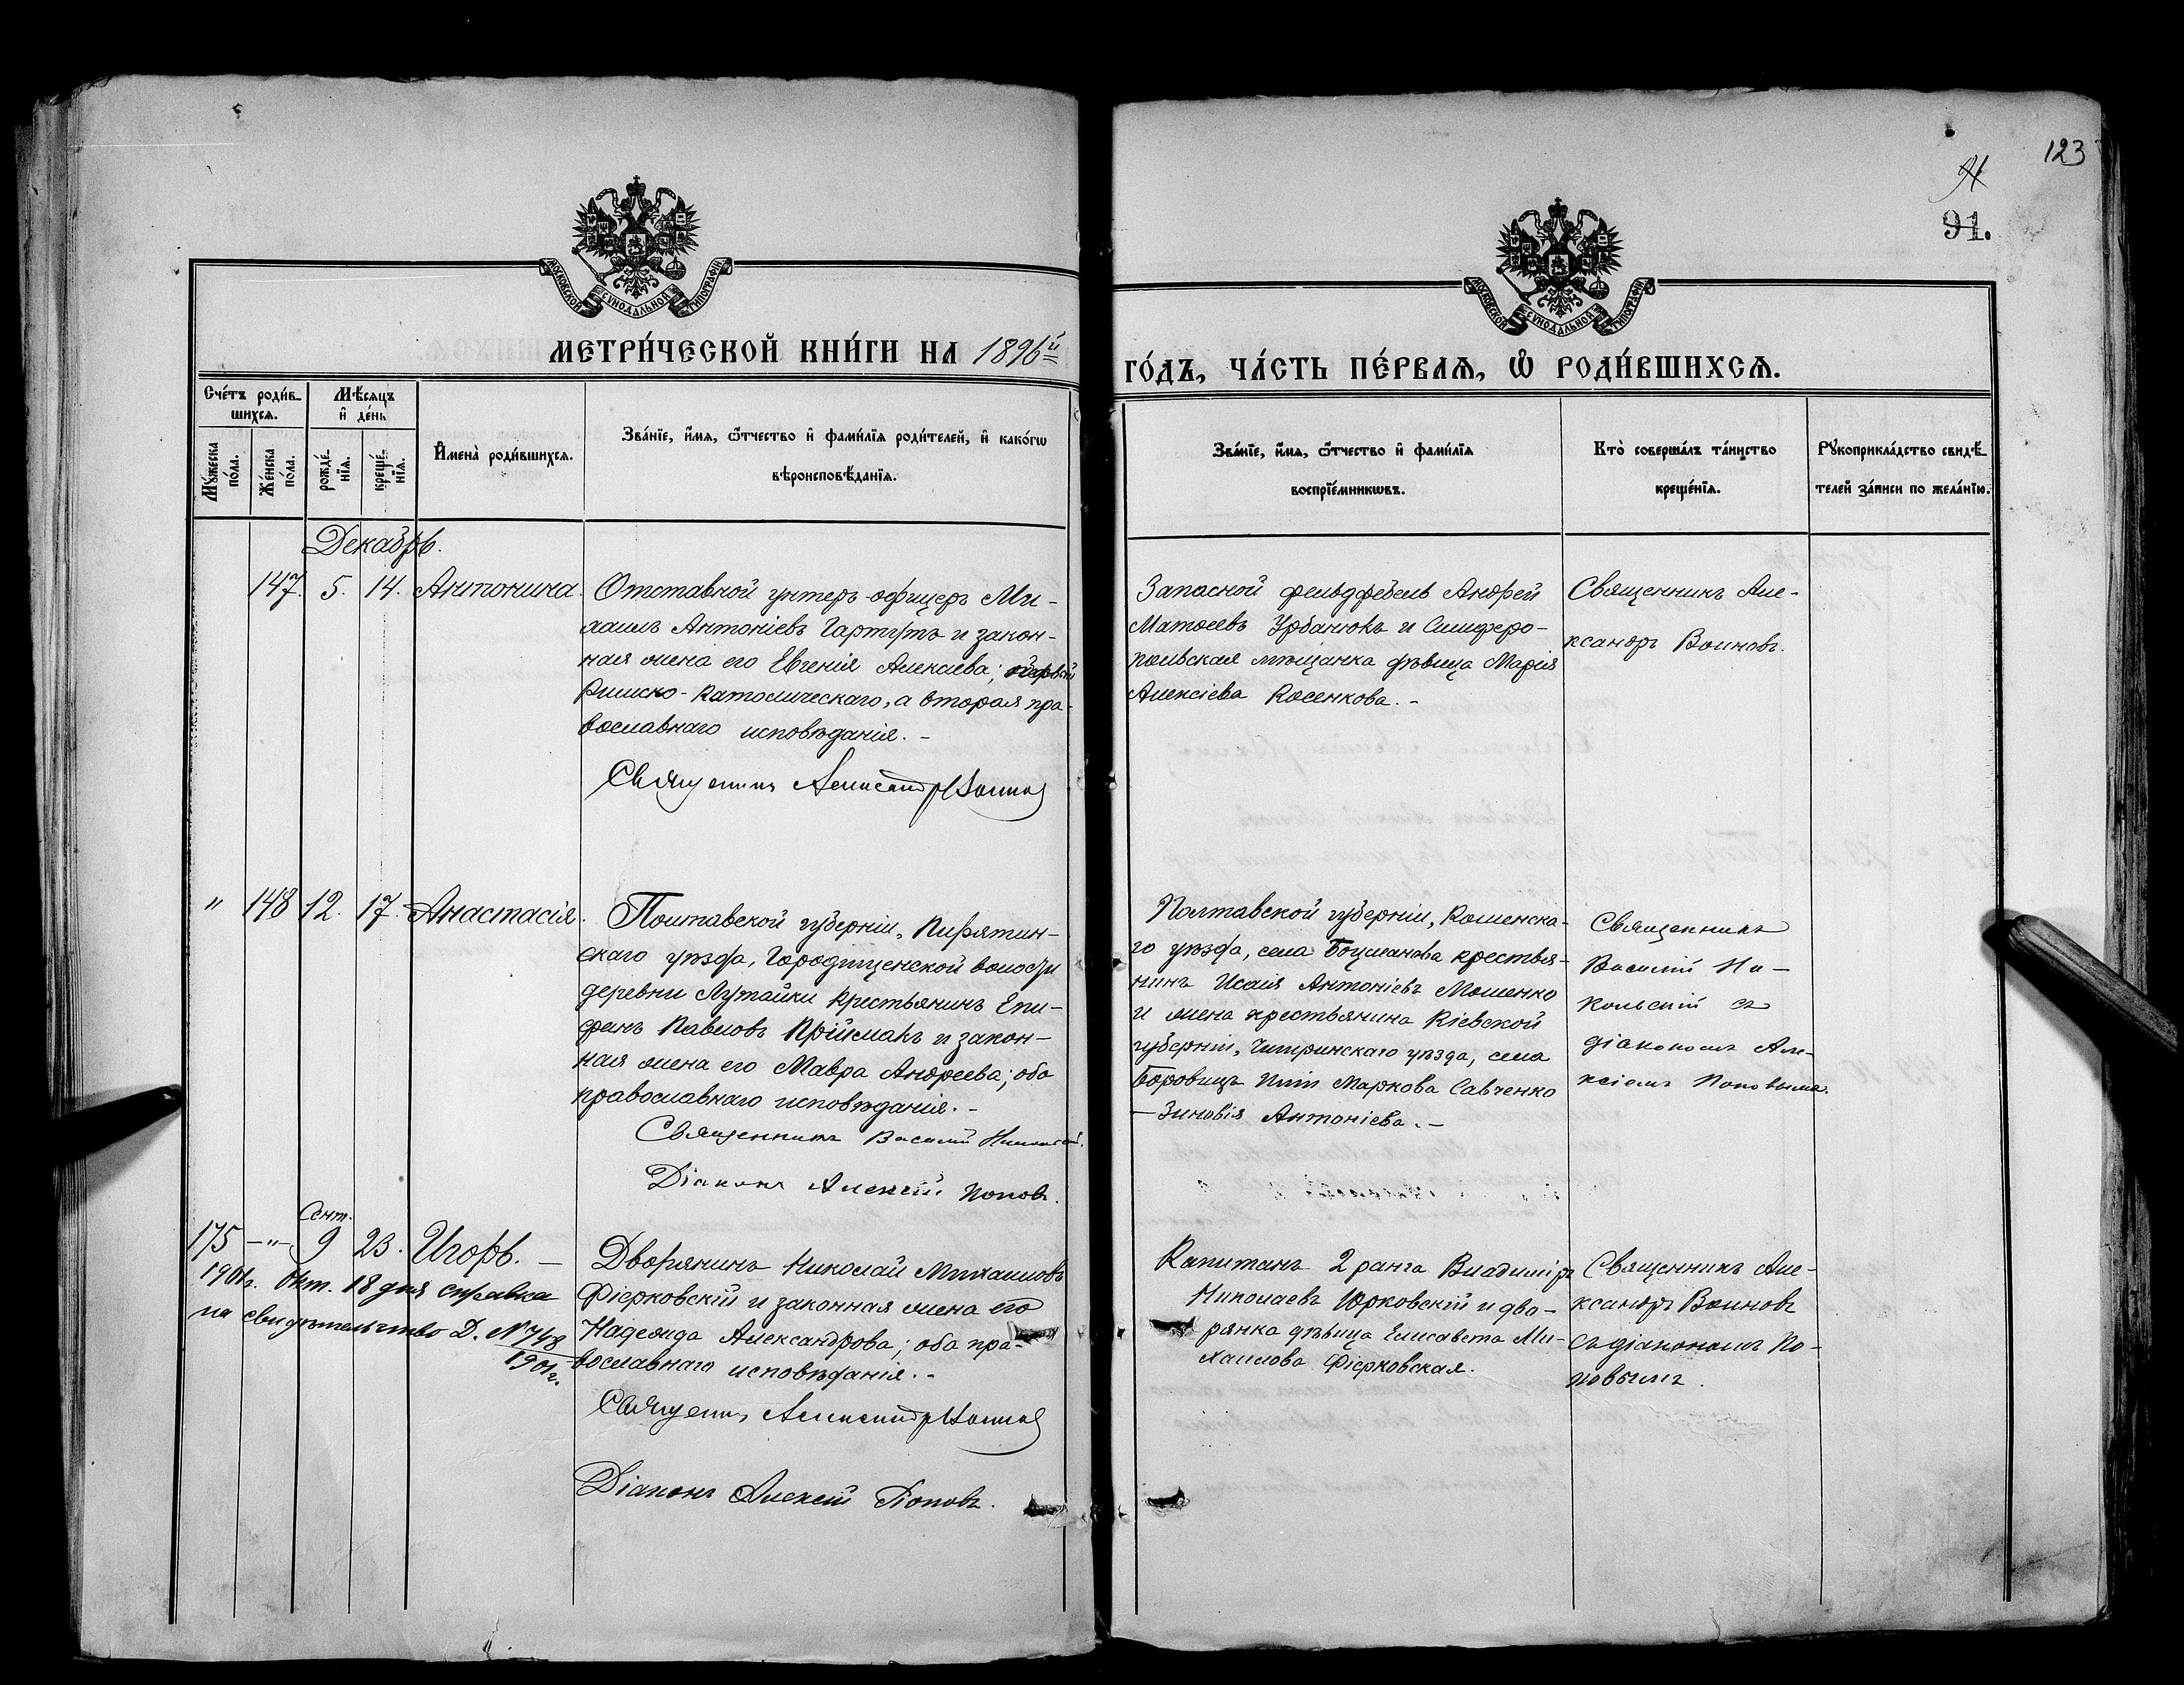 123
91
91.
МОСКОВСКОЙ СУНОДАЛЬНОЙ ТИПОГРАФІИ
МОСКОВСКОЙ СУНОДАЛЬНОЙ ТИПОГРАФІИ
МЕТРИ́ЧЕСКОЙ КНИ́ГИ НА 1896й
ГО́ДЪ, ЧА́СТЬ ПЕ́РВАѦ, Ѡ҆ РОДИ́ВШИХСѦ.
Сче́тъ роди́в-
шихсѧ.
Мѣ́сѧцъ
и҆ де́нь
Мꙋ́жеска
по́ла.
Же́нска
по́ла.
рожде́-
нїѧ.
креще́-
нїѧ.
И҆мена̀ роди́вшихсѧ.
Зва́нїе, и҆́мѧ, ѻ҆́тчество и҆ фами́лїѧ роди́телей, и҆ како́гѡ
вѣроисповѣ́данїѧ.
Зва́нїе, и҆́мѧ, ѻ҆́тчество и҆ фами́лїѧ
воспрїе́мникѡвъ.
Кто̀ соверша́лъ та́инство
креще́нїѧ.
Рꙋкоприкла́дство свидѣ́-
телей за́писи по жела́нїю.
Декабрь.
147. 5. 14. Антонина.
Отставной унтеръ-офицеръ Ми-
хаилъ Антоніевъ Гартутъ и закон-
ная жена его Евгенія Алексіева; первый
Римско-Католическаго, а вторая пра-
вославнаго исповѣданія. -
Священникъ Александръ Воиновъ
Запасной фельдфебель Андрей
Матѳеевъ Урбанюкъ и Симферо-
польская мѣщанка дѣвица Марія
Алексіева Косенкова. -
Священникъ Але-
ксандръ Воиновъ.
" 148 12. 17. Анастасія.
Полтавской губерніи, Пирятин-
скаго уѣзда, Городищенской волости
деревни Лутайки крестьянинъ Епи-
фанъ Павловъ Пріймакъ и закон-
ная жена его Мавра Андреева; оба
православнаго исповѣданія. -
Священникъ Василій Никольскій.
Діаконъ Алексій Поповъ.
Полтавской губерніи,
го уѣзда, села крестья-
нинъ Исаія Антоніевъ Мошенко
и жена крестьянина Кіевской
губерніи, Чигиринскаго уѣзда, села
Боровицъ Маркова Савченко
- Зиновія Антоніева. -
Священникъ
Василій Ни-
кольскій съ
діакономъ Але-
ксіемъ Поповымъ.
Сент.
175 -"- 9 23. Игорь. -
1901г. Окт. 18 дня справка
на свидѣтельство Д. № 748
1901г.
Дворянинъ Николай Михаиловъ
Фіерковскій и законная жена его
Надежда Александрова; оба пра-
вославнаго исповѣданія. -
Священникъ Александръ Воиновъ
Діаконъ Алексій Поповъ.
Капитанъ 2 ранга Владиміръ
Николаевъ Юрковскій и дво-
рянка дѣвица Елисавета Ми-
хаилова Фіерковская.
Священникъ Але-
ксандръ Воиновъ
съ діакономъ По-
повымъ.